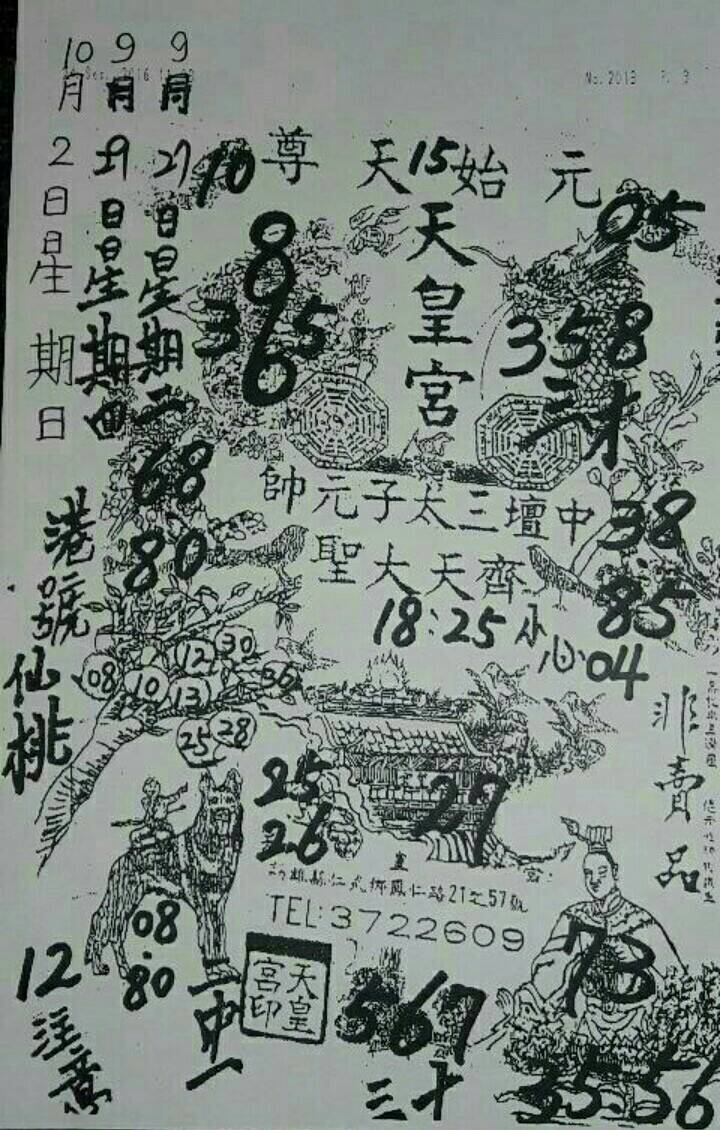 10月2日星期日
9月29日星期四
9月27日星期二
No. 2013
10
尊天始元
15
天皇宮
05
8
9
6
3 5
358
三才
68
80
帥元子太三壇中
聖大天齊
38
85
18:25小心04
港號
仙桃
08
10
12
13
30
36
25 28
非賣品
25
26
27
仁武鄉鳳仁路21之57號
TEL:3722609
08
80
12
注意
一中一
天皇宮印
567
三十
73
35.56